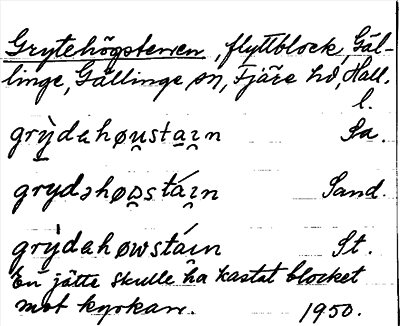 Grytehögstenen, flyttblock, Gäl-
linge, Gällinge sn, Fjäre hd, Hall.
l.
grỳdəhøu̯stai̯n Sa.
grydəhøu̯stái̯n Sand.
grỳdəhøwstái̯n St.
En jätte skulle ha kastat blocket
mot kyrkan. 1950.